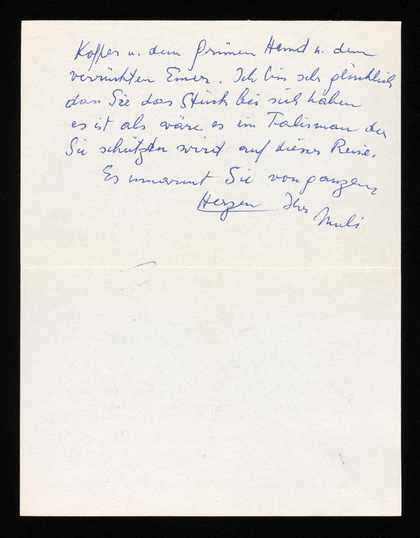 Koffer u. dem grünen Hemd u. dem
verrückten Eimer. Ich bin sehr glücklich
dass Sie das Stück bei sich haben
es ist als wäre es ein Talisman der
Sie schützen wird auf dieser Reise.
Es umarmt Sie von ganzem
Herzen Ihr